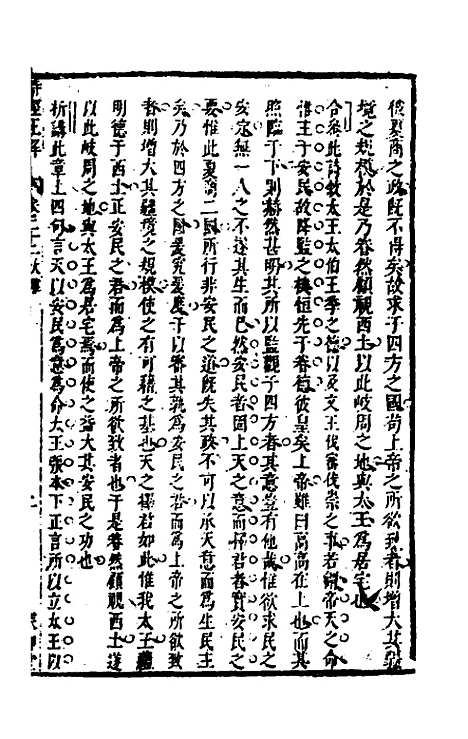 彼夏商之政既不得矣故求于四方之國苟上帝之所欲致者則增大其疆
境之規模於是乃眷然顧視西土以此岐周之地與太王為居宅也
合參此詩敘太王太伯王季之德以及文王伐密伐崇之事若謂帝天之命
惟主于安民故降監之機恒先于眷德彼皇矣上帝雖曰高高在上也而其
照臨于下則赫然甚明其所以監觀于四方者其意豈有他哉惟欲求民之
安定無一人之不遂其生而已然安民者固上天之意而擇君者實安民之
要惟此夏商二國所行非安民之道既失其政不可以承天意而為生民主
矣乃於四方之國爰究爰度于以審其孰為安民之君而為上帝之所欲致
者則增大其疆境之規模使之有可藉之基也天之擇君如此惟我太王
明德于西土正安民之君而為上帝之所欲致者也于是眷然顧視西土遂
以此岐周之地與太王為居宅焉而使之益大其安民之功也
析講此章上四句言天以安民為意為命太王張本下正言所以立太王以
詩經正解 卷二十二大雅